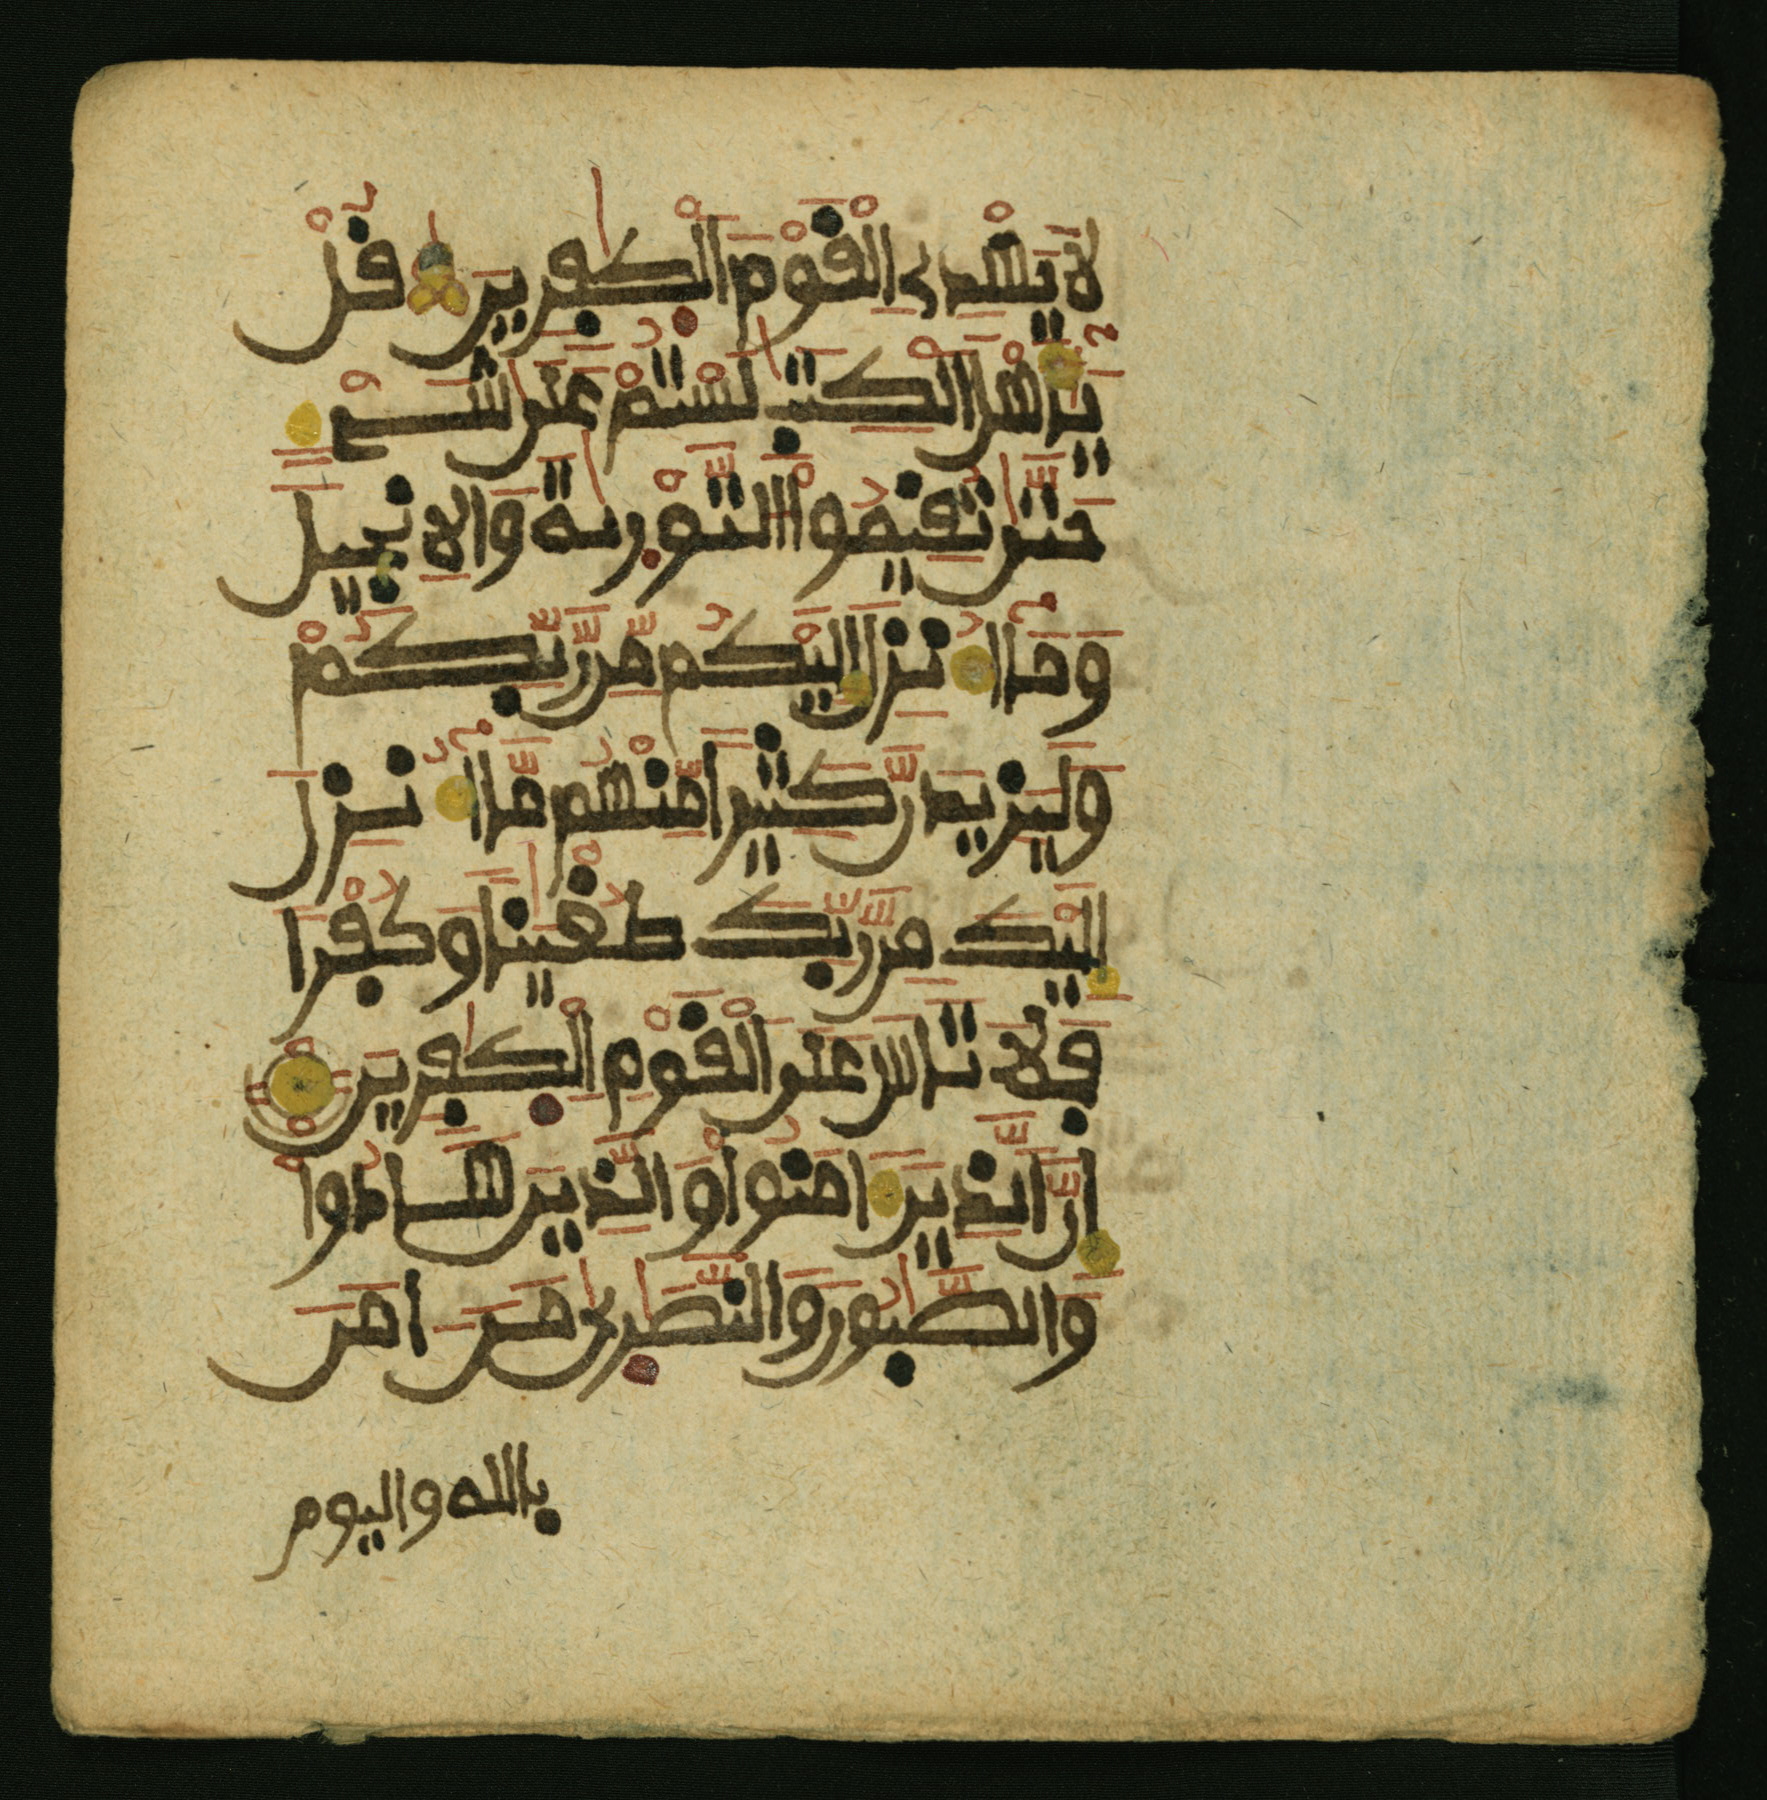 لا يهدى القوم الكفرين قل
يأهل الكتب لستم على شىء
حتى تقيموا التورية والانجيل
وما انزل اليكم من ربكم
وليزيدن كثيرا منهم ما انزل
اليك من ربك طغينا وكفرا
فلا تاس على القوم الكفرين
ان الذين امنوا والذين هادوا
والصبون والنصرى من امن
بالله واليوم